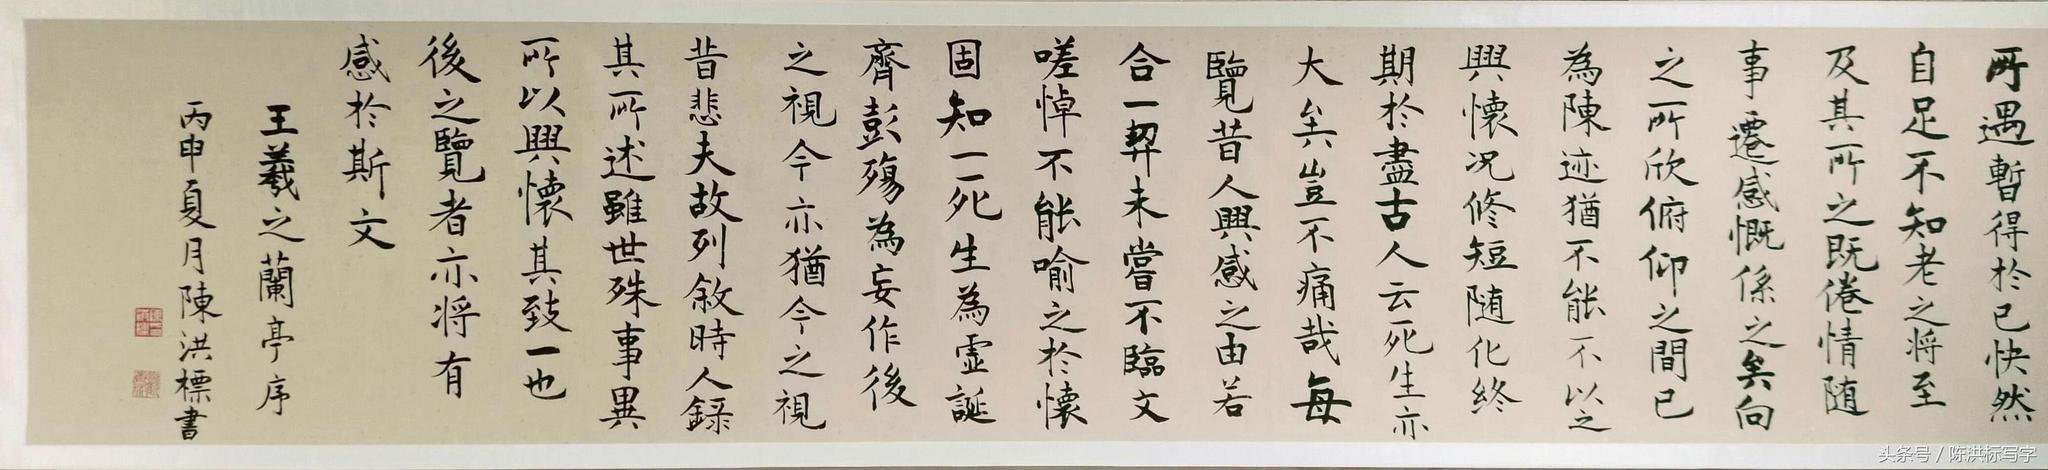 所遇暫得於己快然
自足不知老之将至
及其所之既倦情随
事遷感慨係之矣向
之所欣俯仰之間已
為陳迹猶不能不以之
興懷况修短随化終
期於盡古人云死生亦
大矣豈不痛哉每
覽昔人興感之由若
合一契未嘗不臨文
嗟悼不能喻之於懷
固知一死生為虚誕
齊彭殤為妄作後
之視今亦猶今之視
昔悲夫故列敘時人錄
其所述雖世殊事異
所以興懷其致一也
後之覽者亦将有
感於斯文
王羲之蘭亭序
丙申夏月陳洪標書
头条号／陈洪标写字